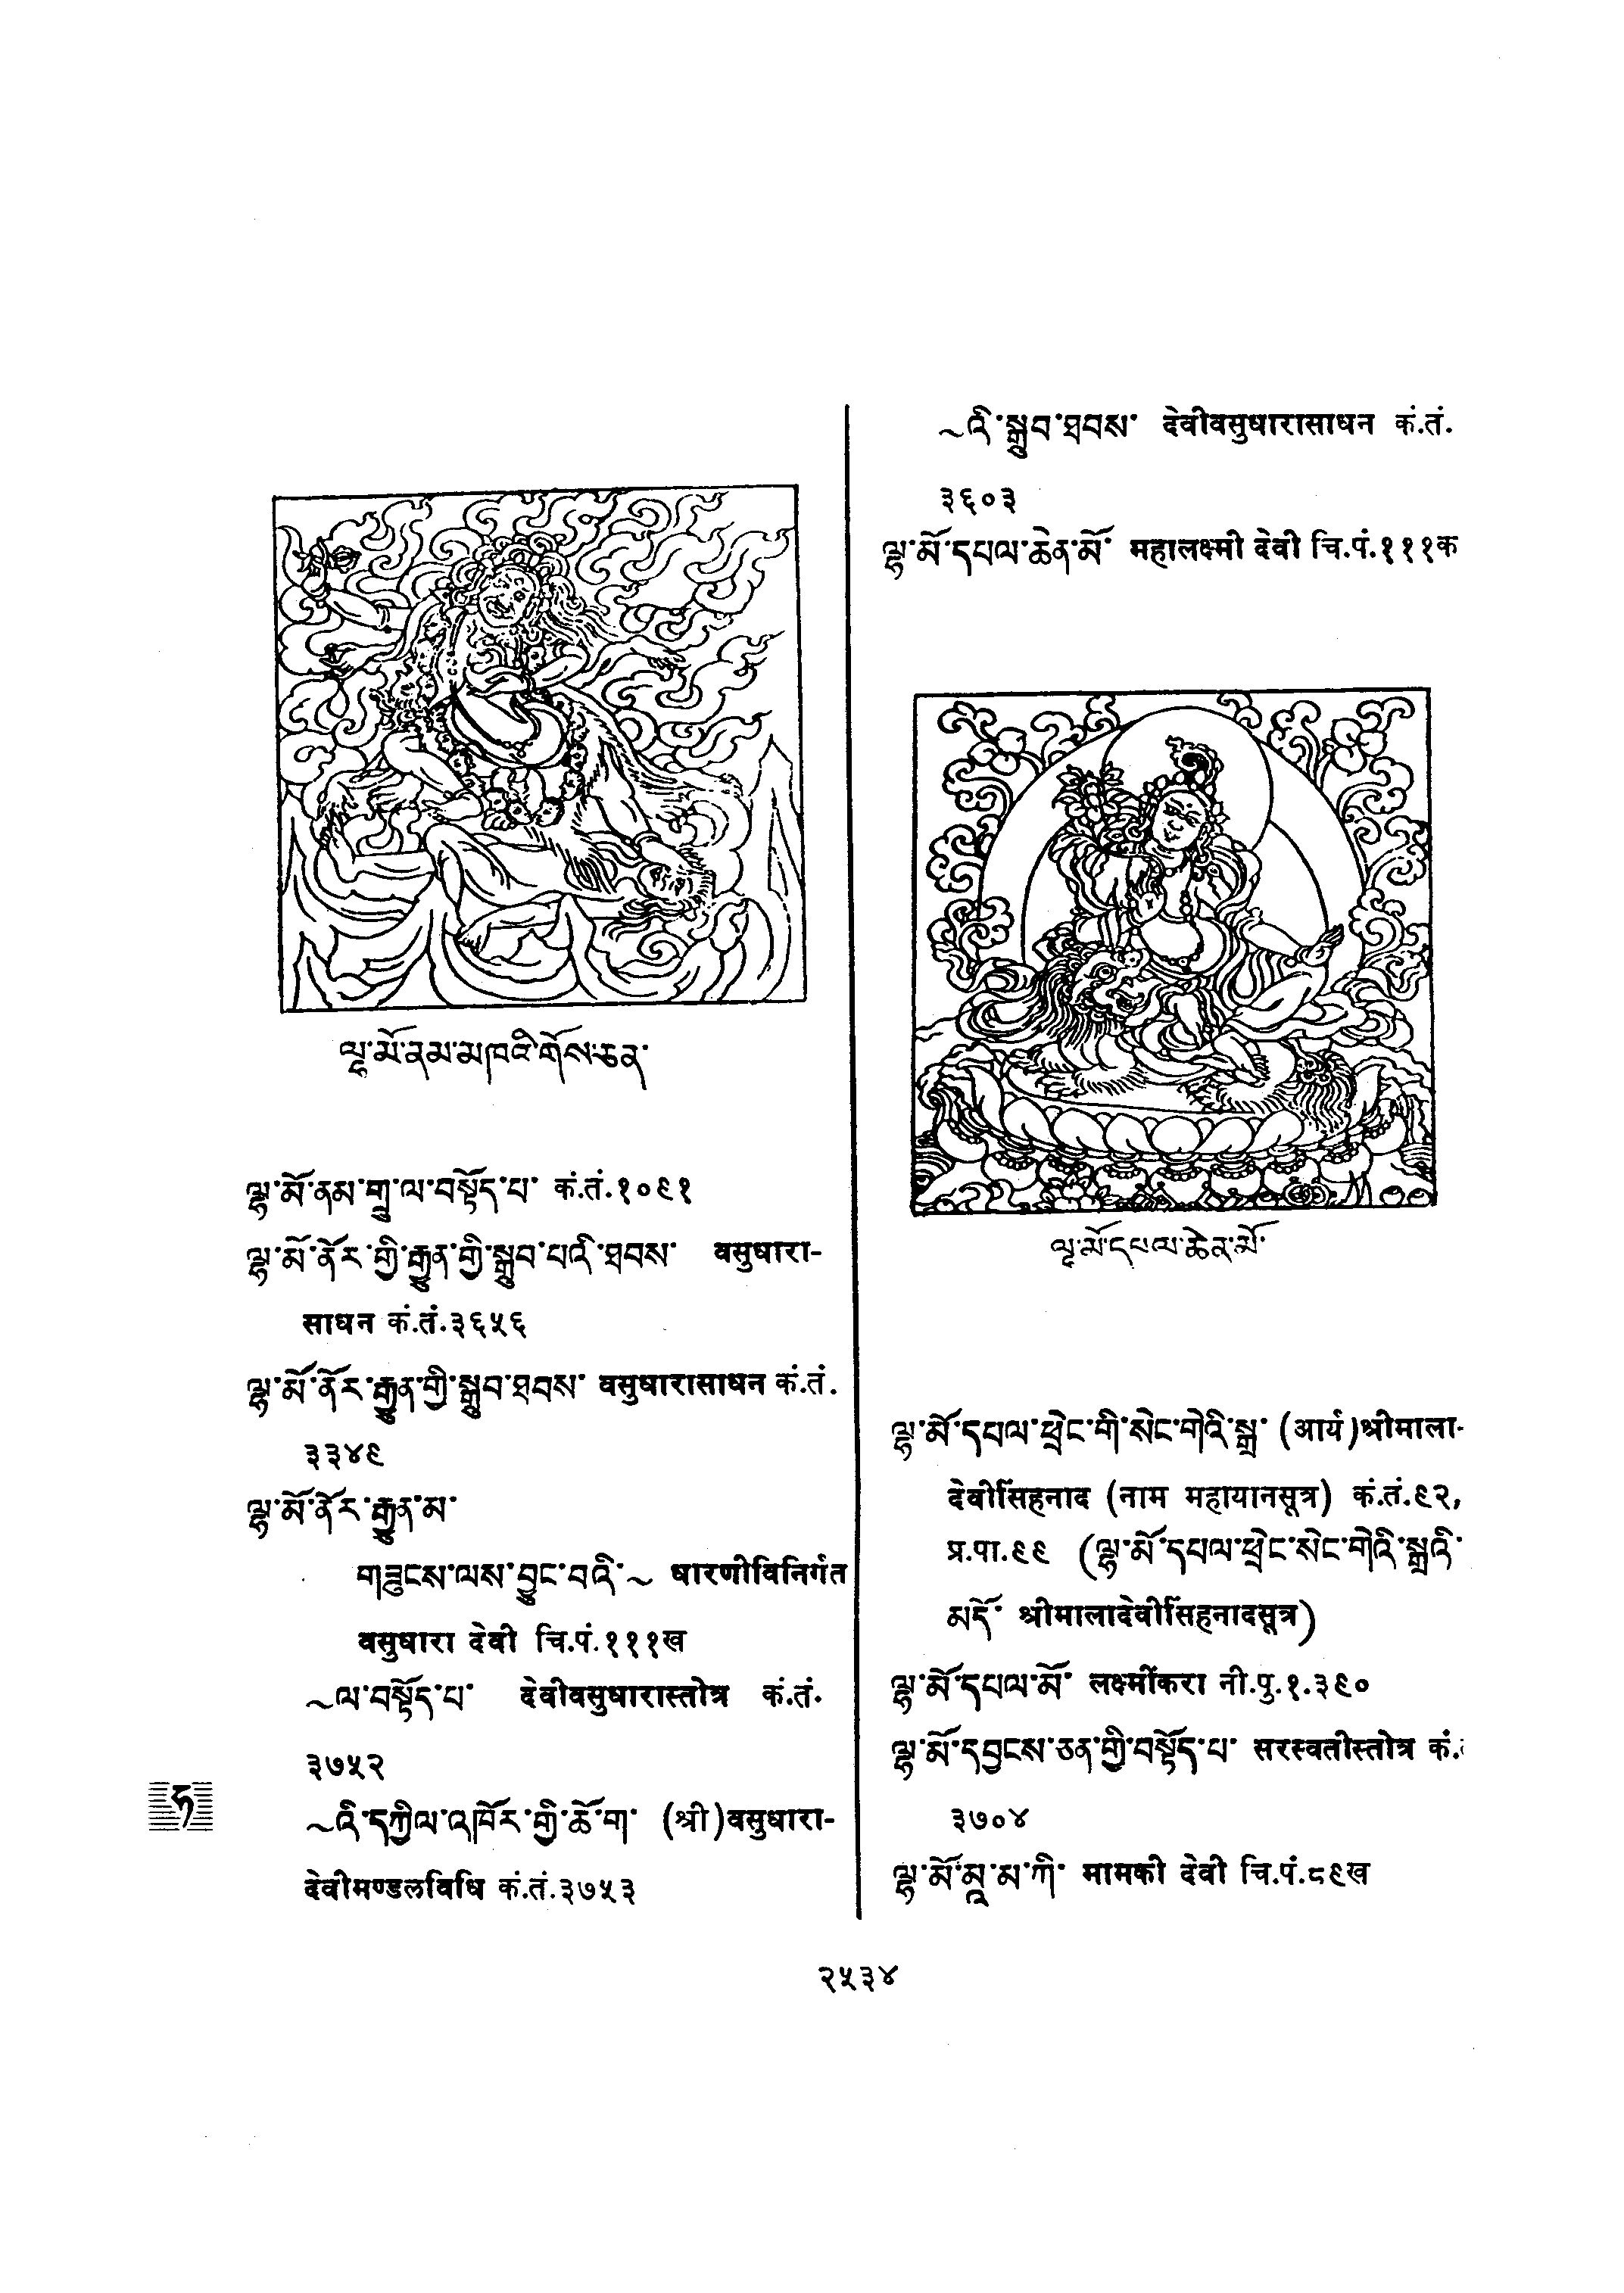 ལྷ་མོ་ནམ་མཁའི་གོས་ཅན་
ལྷ་མོ་ནམ་གྲུ་ལ་བསྟོད་པ་ कं.तं.१०९१
ལྷ་མོ་ནོར་གྱི་རྒྱུན་གྱི་སྒྲུབ་པའི་ཐབས་ वसुधारा-
साधन कं.तं.३६५६
ལྷ་མོ་ནོར་རྒྱུན་གྱི་སྒྲུབ་ཐབས་ वसुधारासाधन कं.तं.
३३४९
ལྷ་མོ་ནོར་རྒྱུན་མ་
གཟུངས་ལས་བྱུང་བའི་~ धारणीविनिर्गत
वसुधारा देवी चि.पं.१११ख
~ལ་བསྟོད་པ་ देवीवसुधारास्तोत्र कं.तं.
३७५२
~འི་དཀྱིལ་འཁོར་གྱི་ཆོ་ག་ (श्री)वसुधारा-
देवीमण्डलविधि कं.तं.३७५३
ཧ
~འི་སྒྲུབ་ཐབས་ देवीवसुधारासाधन कं.तं.
३६०३
ལྷ་མོ་དཔལ་ཆེན་མོ་ महालक्ष्मी देवी चि.पं.१११क
ལྷ་མོ་དཔལ་ཆེན་མོ་
ལྷ་མོ་དཔལ་ཕྲེང་གི་སེང་གེའི་སྒྲ་ (आर्य)श्रीमाला-
देवीसिंहनाद (नाम महायानसूत्र) कं.तं.९२,
प्र.पा.९९ (ལྷ་མོ་དཔལ་ཕྲེང་སེང་གེའི་སྒྲའི་
མདོ་ श्रीमालादेवीसिंहनादसूत्र)
ལྷ་མོ་དཔལ་མོ་ लक्ष्मींकरा नी.पु.१.३९०
ལྷ་མོ་དབྱངས་ཅན་གྱི་བསྟོད་པ་ सरस्वतीस्तोत्र कं.
३७०४
ལྷ་མོ་མཱ་མ་ཀི་ मामकी देवी चि.पं.८९ख
२५३४